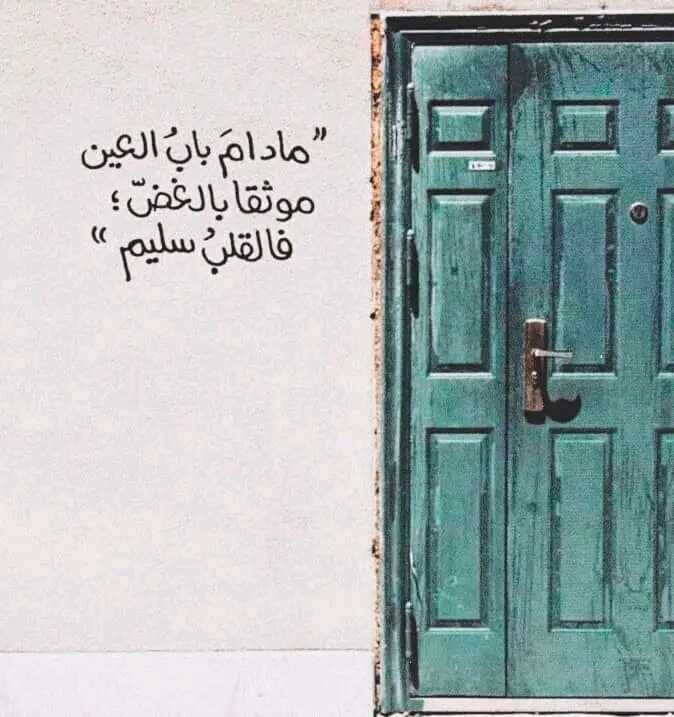 ”مادامَ بابُ العين
موثقا بالغضّ ؛
فالقلبُ سليم “